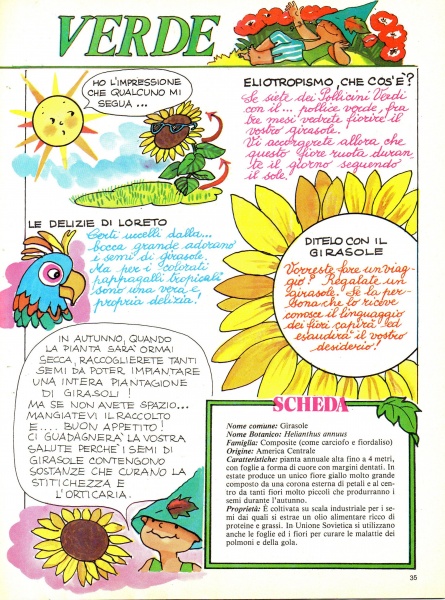 VERDE
HO L'IMPRESSIONE
CHE QUALCUNO MI
SEGUA...
ELIOTROPISMO, CHE COS'È?
Se siete dei Pollicini Verdi
con il... pollice verde, fra
tre mesi vedrete fiorire il
vostro girasole.
Vi accorgerete allora che
questo fiore ruota duran
te il giorno seguendo
il sole.
LE DELIZIE DI LORETO
Certi uccelli dalla...
bocca grande adorano
i semi di girasole.
Ma per i colorati
pappagalli tropicali
sono una vera e
propria delizia!
DITELO CON IL
GIRASOLE
Vorreste fare un viag-
gio? Regalate un
girasole. Se la per-
sona che lo riceve
conosce il linguaggio
dei fiori capirà ed
esaudirà il vostro
desiderio!
IN AUTUNNO, QUANDO
LA PIANTA SARA' ORMAI
SECCA, RACCOGLIERETE TANTI
SEMI DA POTER IMPIANTARE
UNA INTERA PIANTAGIONE
DI GIRASOLI!
MA SE NON AVETE SPAZIO...
MANGIATEVI IL RACCOLTO
E.... BUON APPETITO!
CI GUADAGNERA' LA VOSTRA
SALUTE PERCHE' I SEMI DI
GIRASOLE CONTENGONO
SOSTANZE CHE CURANO LA
STITICHEZZA E
L'ORTICARIA.
SCHEDA
Nome comune: Girasole
Nome Botanico: Helianthus annuus
Famiglia: Composite (come carciofo e fiordaliso)
Origine: America Centrale
Caratteristiche: pianta annuale alta fino a 4 metri,
con foglie a forma di cuore con margini dentati. In
estate produce un unico fiore giallo molto grande
composto da una corona esterna di petali e al cen-
tro da tanti fiori molto piccoli che produrranno i
semi durante l'autunno.
Proprietà: È coltivata su scala industriale per i se-
mi dai quali si estrae un olio alimentare ricco di
proteine e grassi. In Unione Sovietica si utilizzano
anche le foglie ed i fiori per curare le malattie dei
polmoni e della gola.
35